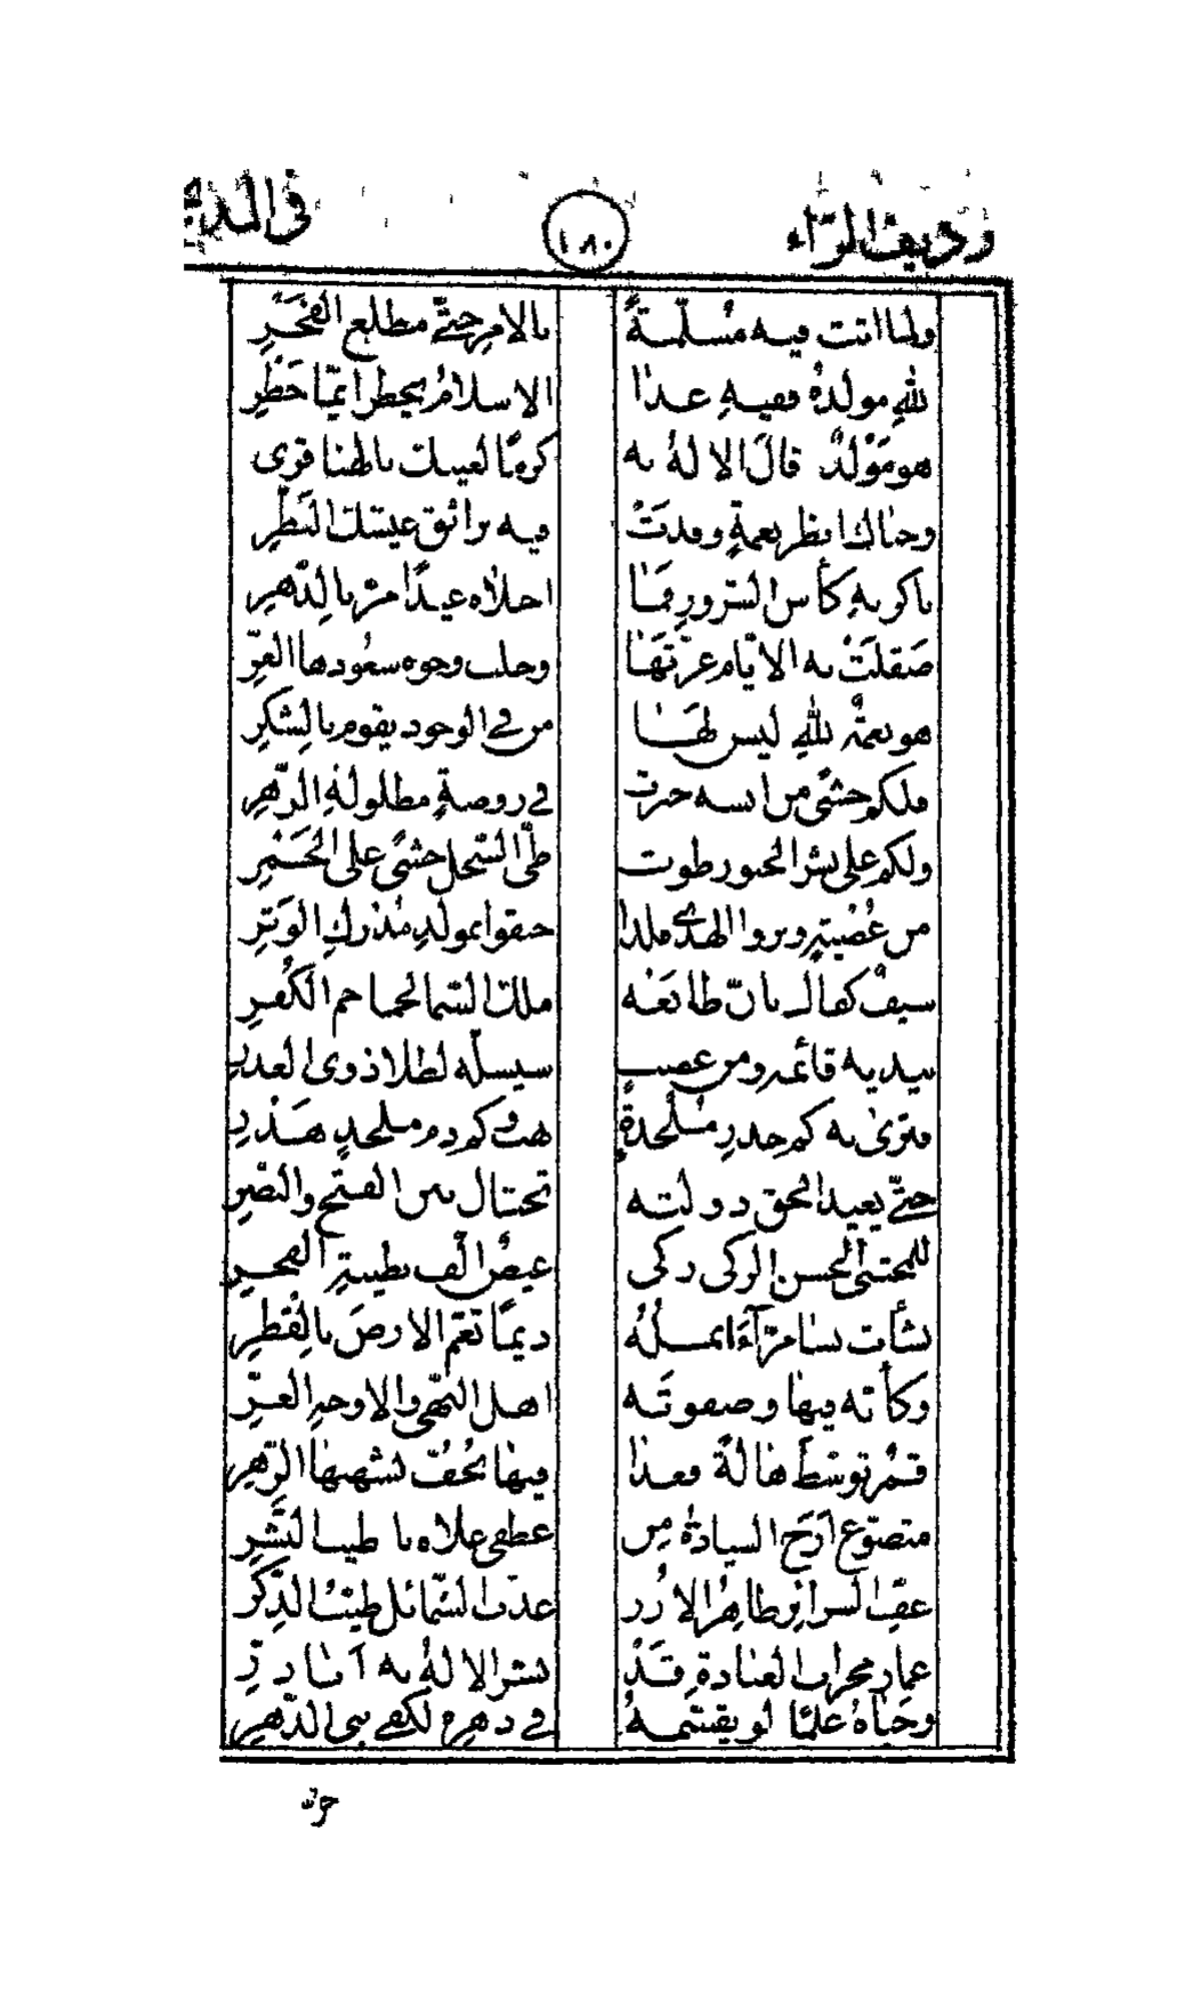 رديف الراء ١٨٠ في المد
ولما اتت فيه مسلمةً بالامر حتّى مطلع الفجرِ
للهِ مولدهُ ففيهِ غدا الاسلامُ يخطر ايّما خطرِ
هو مولدٌ قالَ الالهُ به كرمًا لعينك بالهنا قرى
وحباك انظر نعمةٍ وفدتْ فيه برائق عيشك النضرِ
باكر بهِ كأس السّرورِ فما احلاه عيدًا مرّ بالدّهرِ
صقلتْ به الايّام غرّتها وجلت وجوه سعودها الغرّ
هو نعمةٌ للهِ ليس لها من في الوجود يقوم بالشكرِ
فلكم حشىً من انسه حبرت في روضةٍ مطلولةِ الزّهرِ
ولكم على بشر الحبور طوت طيّ السّجل حشىً على الجمرِ
من عُصبةٍ وتروا الهدى فلذا حنقوا بمولدِ مُدركِ الوترِ
سيف كفاك بانّ طابعه ملك السّما لجماجم الكُفرِ
بيديه قائمه ومن غضب سيسلّه لطلا ذوى الغدرِ
فترى به كم خدرِ مُلحدةٍ هتكو كم دم ملحدٍ هدرِ
حتّى يعيد الحق دولته تختال بين الفتح والنّصرِ
للمجتبى الحسن الزكى زكى عيصٌ الّف بطينةِ الفخرِ
نشأت بسامرّآءَ انملهُ ديمًا تعمّ الارض بالقطرِ
وكأنّه فيها وصفوته اهل النّهى والاوجهِ الغرّ
قمرٌ توسّط هالةً فغدا فيها تحُفّ بشهبها الزّهرِ
متضوّع ارَج السيادةِ من عطفى علاه باطيب النّشرِ
عفّ السرائرِ طاهرُ الازر عذب الشّمائل طيّبُ الذّكر
عمار محراب العبادةِ قد نشر الالهُ به آبا ذرّ
وحباهُ علمًا لو يقسّمهُ في دهره لكفى بنى الدّهرِ